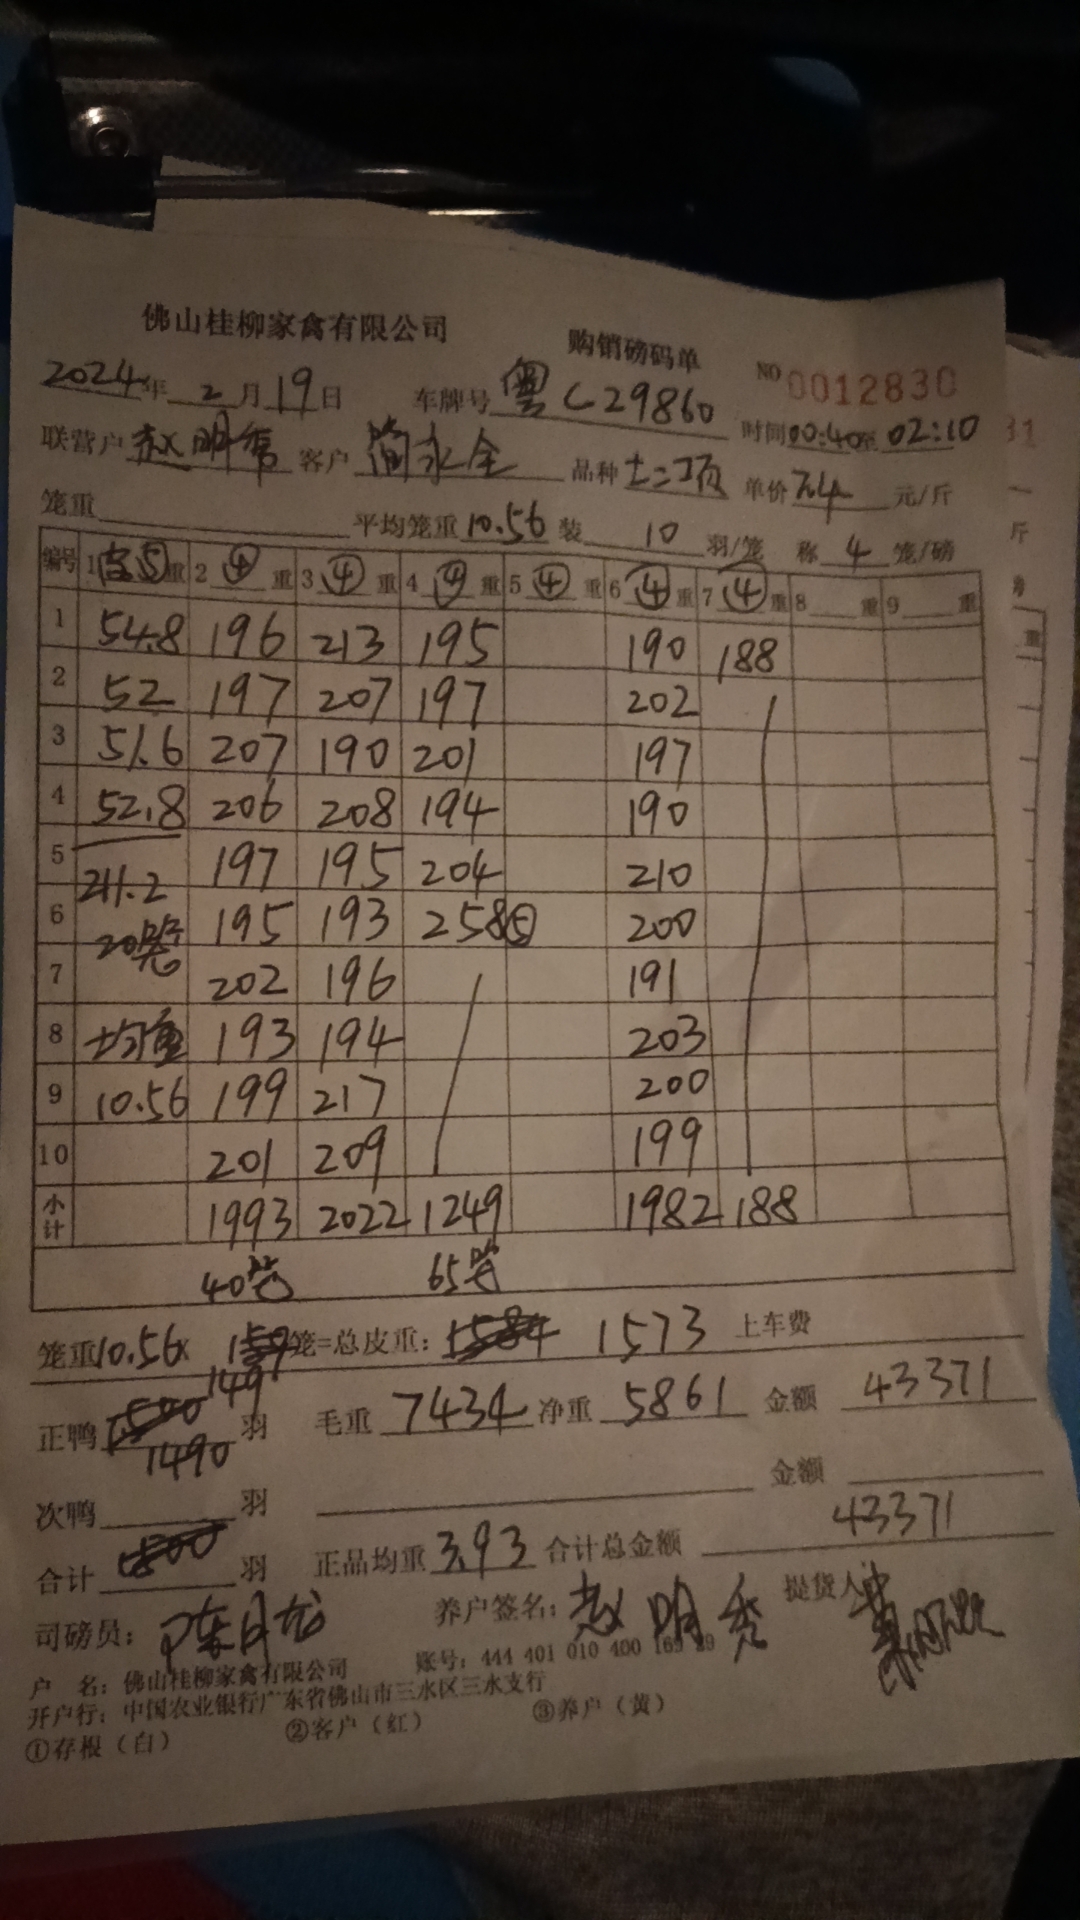 佛山桂柳家禽有限公司 购销磅码单 NO 0012830
2024年 2月19日 车牌号 粤C29860 时间00:40至02:10
联营户 赵明秀 客户 简永全 品种 单价7.4 元/斤
笼重 平均笼重10.56 装 10 羽/笼 称 4 笼/磅
编号 1皮⑤重 2 ④ 重 3 ④ 重 4 ④ 重 5 ④ 重 6 ④ 重 7 ④ 重 8 重 9 重
1 54.8 196 213 195 190 188
2 52 197 207 197 202
3 51.6 207 190 201 197
4 52.8 206 208 194 190
5 211.2 197 195 204 210
6 20笼 195 193 258⑤ 200
7 202 196 191
8 均重 193 194 203
9 10.56 199 217 200
10 201 209 199
小计 1993 2022 1249 1982 188
40笼 65笼
笼重10.56x 149 笼=总皮重: 1573 上车费
正鸭 1490 羽 毛重 7434 净重 5861 金额 43371
次鸭 羽 金额
合计 羽 正品均重 3.93 合计总金额 43371
司磅员: 陈月龙 养户签名: 赵明秀 提货人
户 名: 佛山桂柳家禽有限公司 账号: 444 401 010 400 169 29
开户行: 中国农业银行广东省佛山市三水区三水支行
①存根(白) ②客户(红) ③养户(黄)